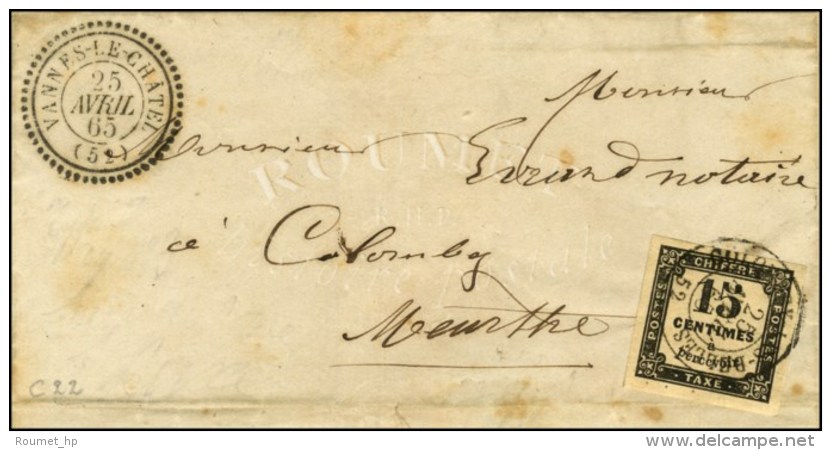 VANNES-LE-CHÂTEL
25
AVRIL
65
(52)
Monsieur
Monsieur Evrard notaire
à Colombey
Meurthe
C 22
CHIFFRE
15
CENTIMES
à
percevoir
POSTES
POSTES
TAXE
25
52
ROUMET
Roumet_hp
www.delcampe.net